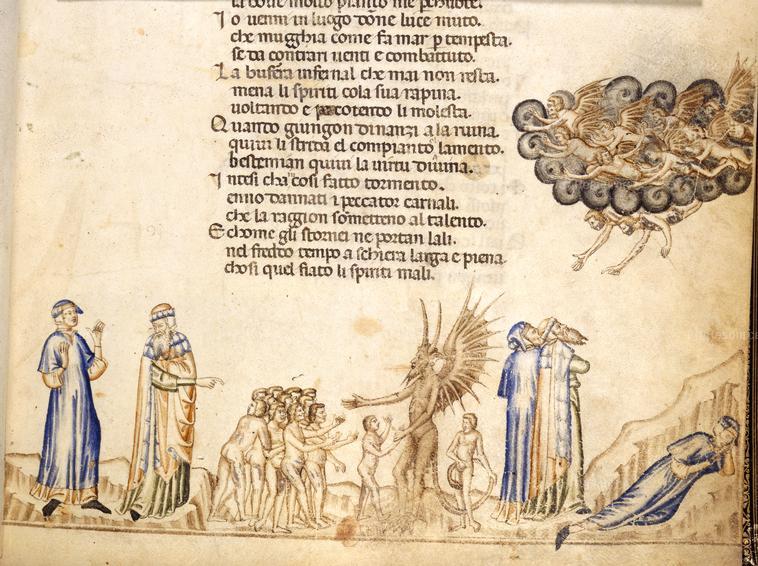 la dove molto pianto me percuote.
Io venni in luogo dōne luce muto.
che mugghia come fa mar ꝑ tempesta.
se da contrari uenti e combattuto.
La bufera infernal che mai non resta.
mena li spiriti cola sua rapina.
uoltando e percotendo li molesta.
Quando giungon dinanzi ala ruina.
quiui li strida el compianto lamento.
bestemian quiui la uirtu diuina.
Intesi cha cosi fatto tormento.
enno dannati i peccator carnali.
che la raggion sometteno al talento.
E chome gli stornei ne portan lali.
nel freddo tempo a schiera larga e piena
chosi quel fiato li spiriti mali.